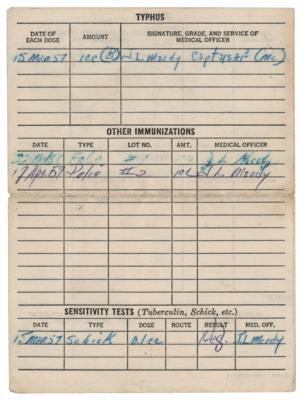 TYPHUS
DATE OF EACH DOSE AMOUNT SIGNATURE, GRADE, AND SERVICE OF MEDICAL OFFICER
15 Mar 57 1cc J L Moody Capt USAF (MC)
OTHER IMMUNIZATIONS
DATE TYPE LOT NO. AMT. MEDICAL OFFICER
Polio #1 J L Moody
17 Apr 57 Polio #2 1cc J L Moody
SENSITIVITY TESTS (Tuberculin, Schick, etc.)
DATE TYPE DOSE ROUTE RESULT MED. OFF.
15 Mar 57 Schick 0.1cc Neg. J L Moody